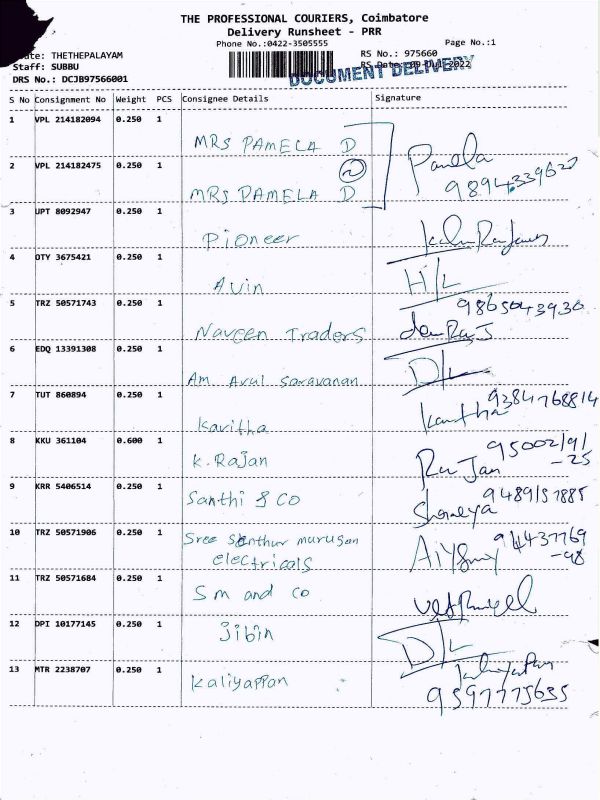 THE PROFESSIONAL COURIERS, Coimbatore
Delivery Runsheet - PRR
Phone No.:0422-3505555
Page No.:1
THETHEPALAYAM
RS No.: 975660
Staff: SUBBU
RS Date.: 09-Jul-2022
DOCUMENT DELIVERY
DRS No.: DCJB97566001
S No Consignment No Weight PCS Consignee Details Signature
1 VPL 214182094 0.250 1
MRS PAMELA D
2 VPL 214182475 0.250 1 2 Pamela
MRS PAMELA D
3 UPT 8092947 0.250 1
Pioneer
4 OTY 3675421 0.250 1 H/L
Avin
5 TRZ 50571743 0.250 1 9865043930
Naveen Traders
6 EDQ 13391308 0.250 1 D/L
Am Arul Saravanan
7 TUT 860894 0.250 1 9384768814
Kavitha Kavitha
8 KKU 361104 0.600 1
K. Rajan Ra Jan
9 KRR 5406514 0.250 1
Santhi & CO
10 TRZ 50571906 0.250 1
Sree Senthur murugan
electricals
11 TRZ 50571684 0.250 1
Sm and co
12 DPI 10177145 0.250 1
Jibin D/L
13 MTR 2238707 0.250 1
Kaliyappan